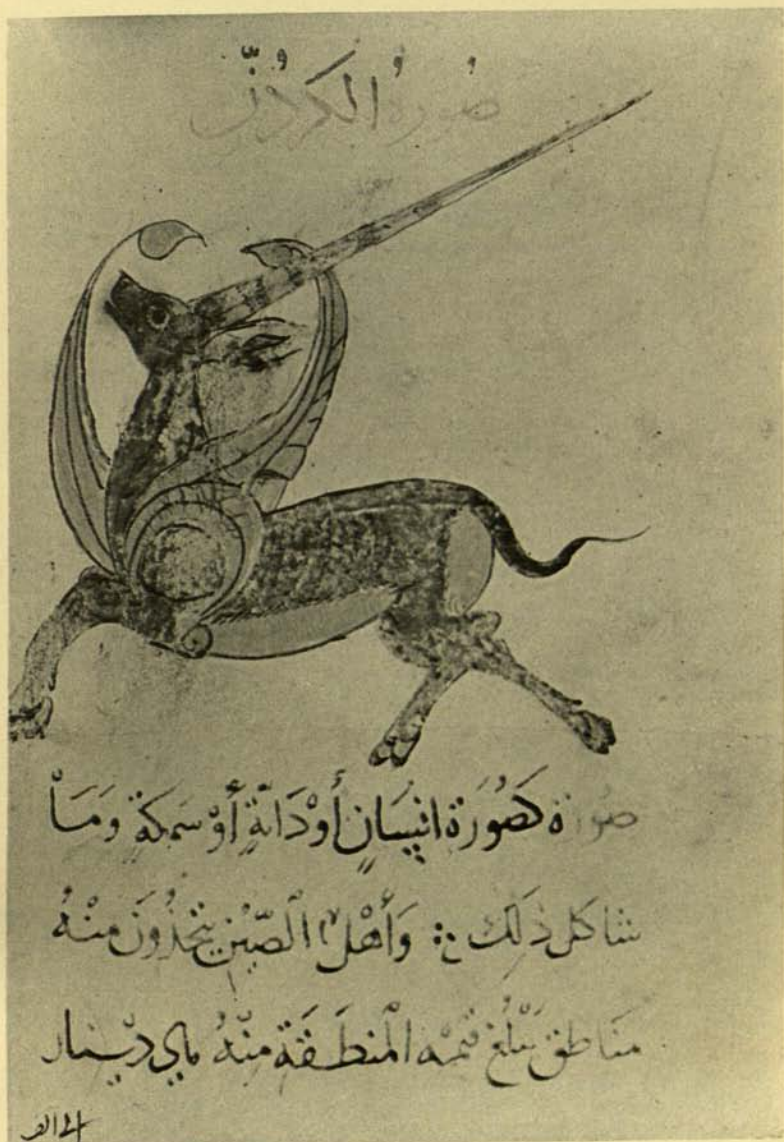 صُورَةُ الكَرْكَدَّن
صُورَة كَصُورَة اِنْسَانٍ أَوْ دَابَّةٍ أَوْ سَمَكَةٍ وَمَا
شَاكَلَ ذَلِكَ وَأَهْلُ الصِّيْنِ يَتَّخِذُونَ مِنْهُ
مَنَاطِق يَبْلُغُ قِيْمَة الْمِنْطَقَة مِنْهُ مِايَ دِيْنَار
الى الف